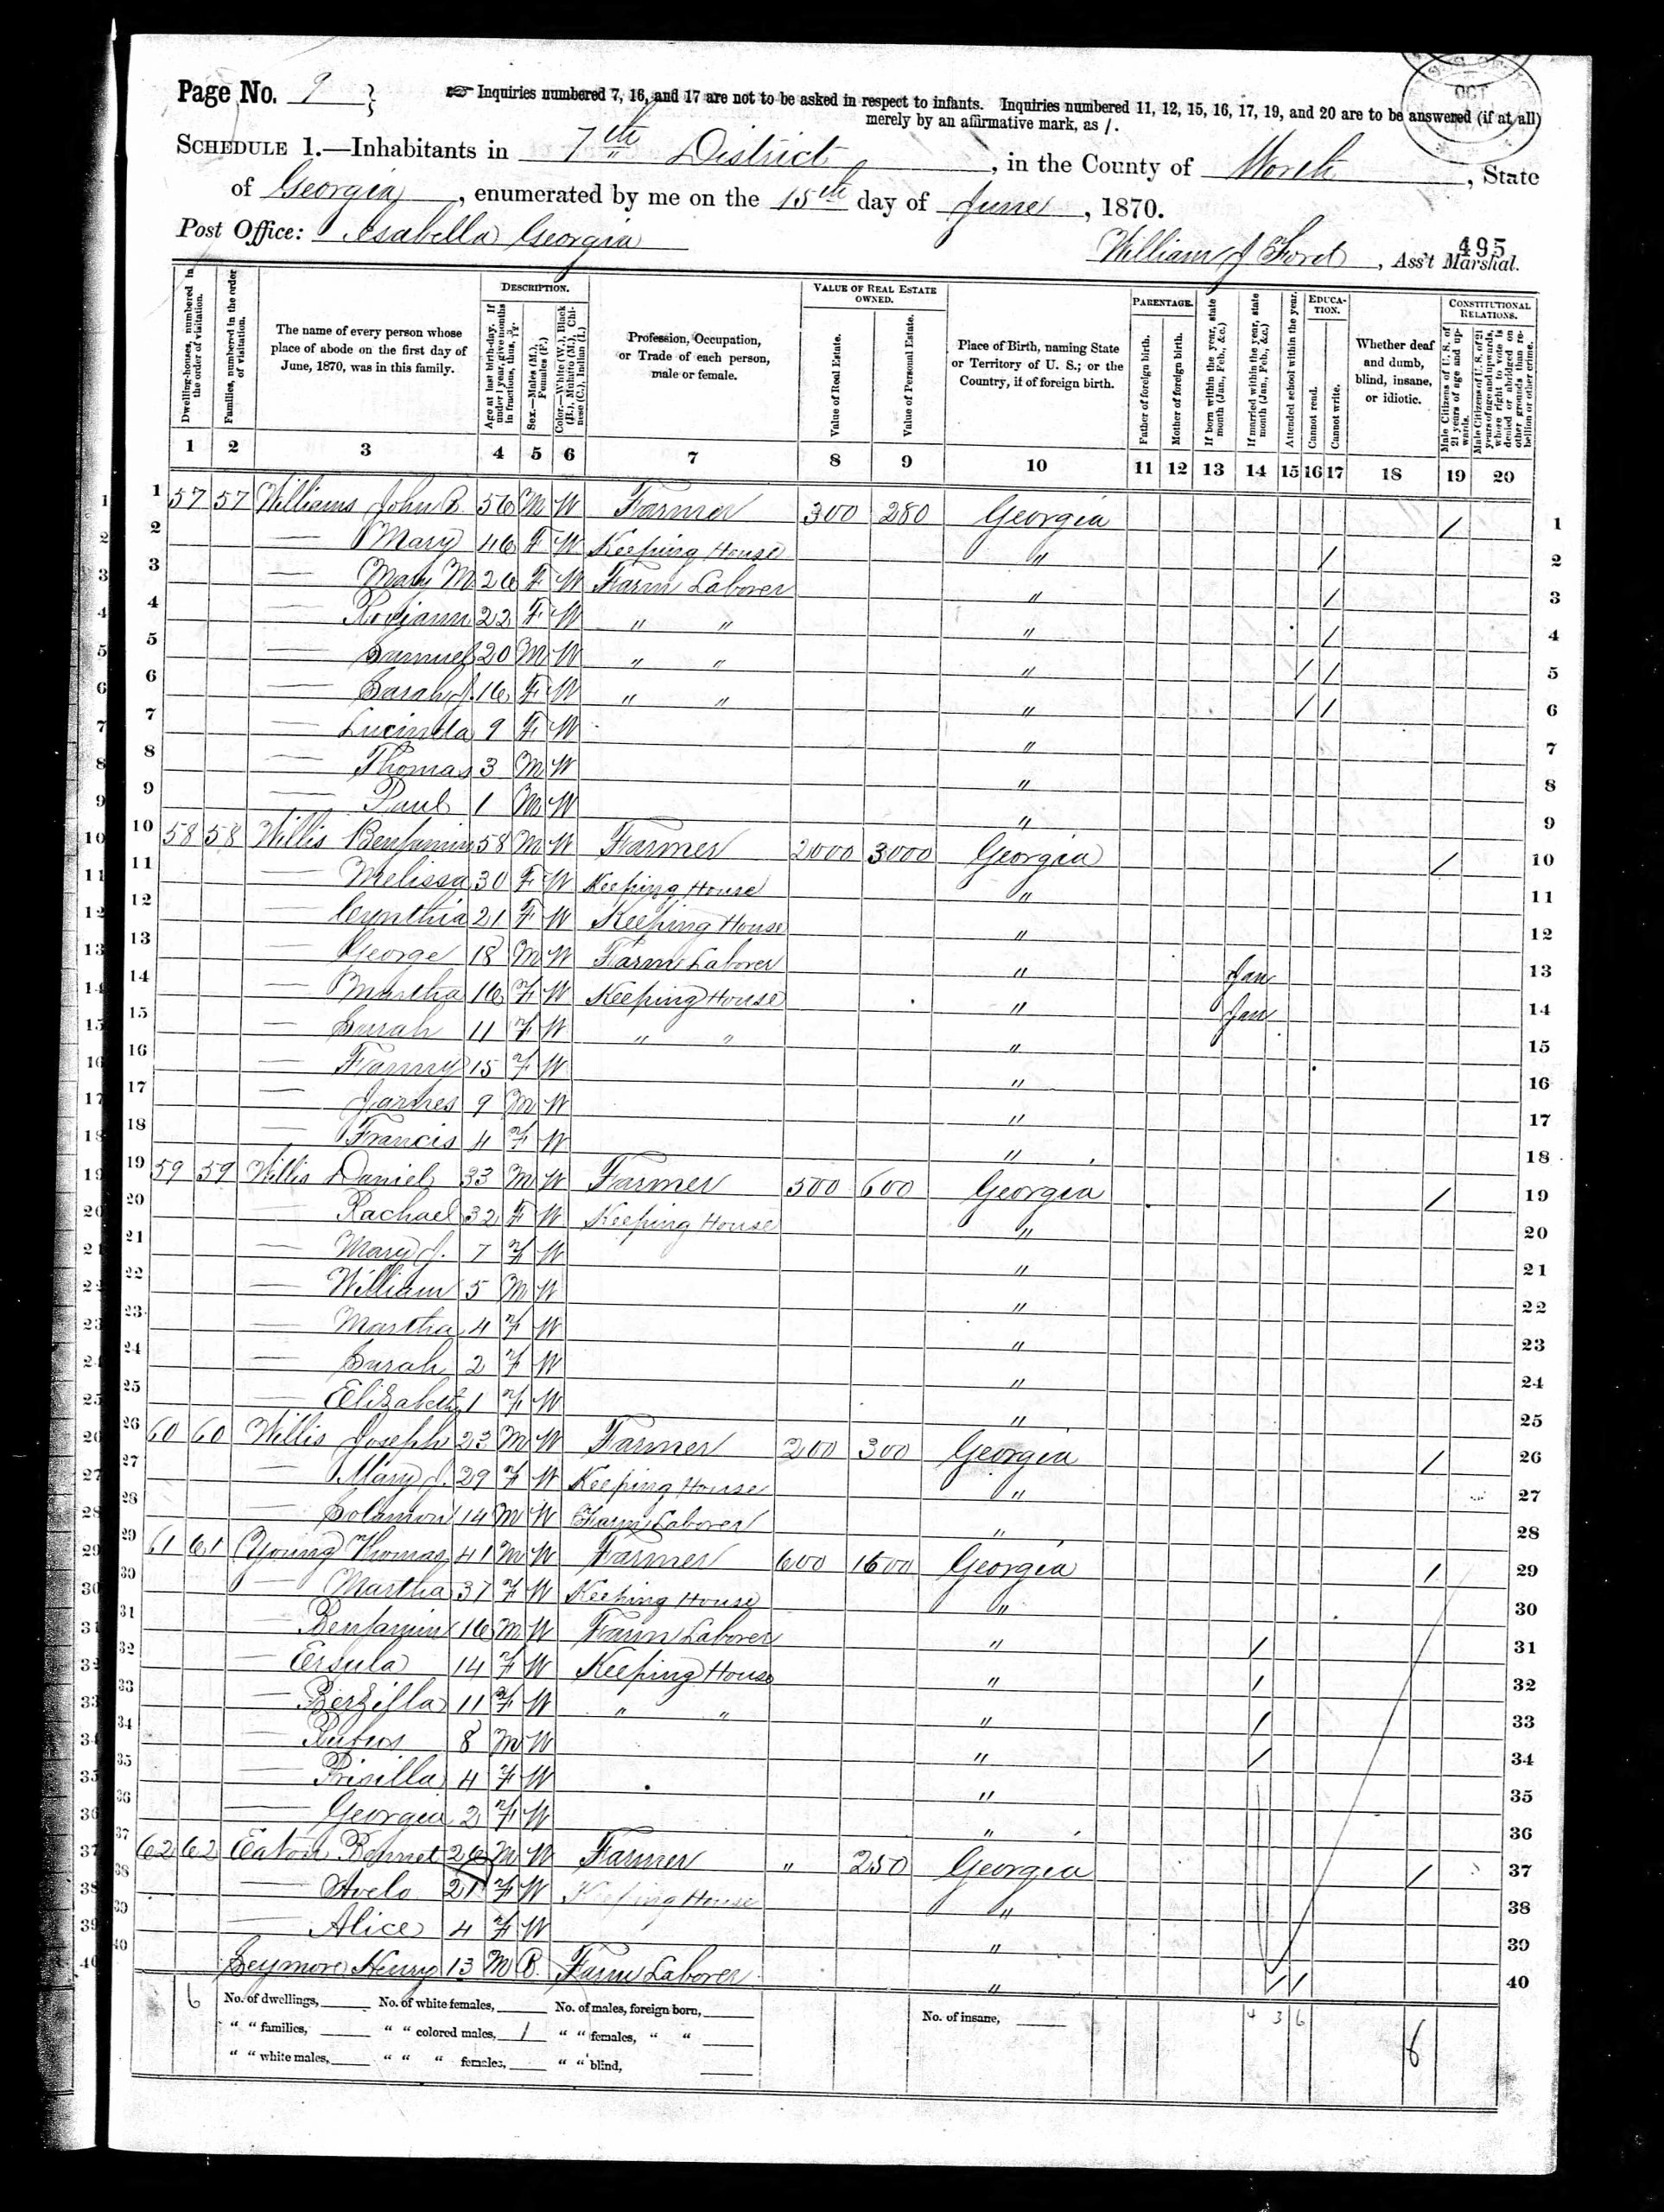 Page No. 9
☞ Inquiries numbered 7, 16, and 17 are not to be asked in respect to infants. Inquiries numbered 11, 12, 15, 16, 17, 19, and 20 are to be answered (if at all)
merely by an affirmative mark, as /.
OCT
SCHEDULE 1.—Inhabitants in 7th District, in the County of Worth, State
of Georgia, enumerated by me on the 15th day of June, 1870.
Post Office: Isabella Georgia
495
William J Ford, Ass't Marshal.
Dwelling-houses, numbered in the order of visitation.
Families, numbered in the order of visitation.
The name of every person whose place of abode on the first day of June, 1870, was in this family.
DESCRIPTION.
Age at last birth-day. If under 1 year, give months in fractions, thus, 3/12.
Sex.—Males (M.), Females (F.)
Color.—White (W.), Black (B.), Mulatto (M.), Chinese (C.), Indian (I.)
Profession, Occupation, or Trade of each person, male or female.
VALUE OF REAL ESTATE OWNED.
Value of Real Estate.
Value of Personal Estate.
Place of Birth, naming State or Territory of U. S.; or the Country, if of foreign birth.
PARENTAGE.
Father of foreign birth.
Mother of foreign birth.
If born within the year, state month (Jan., Feb., &c.)
If married within the year, state month (Jan., Feb., &c.)
Attended school within the year.
EDUCATION.
Cannot read.
Cannot write.
Whether deaf and dumb, blind, insane, or idiotic.
CONSTITUTIONAL RELATIONS.
Male Citizens of U. S. of 21 years of age and upwards.
Male Citizens of U. S. of 21 years of age and upwards, where right to vote is denied or abridged on other grounds than rebellion or other crime.
1 2 3 4 5 6 7 8 9 10 11 12 13 14 15 16 17 18 19 20
1 57 57 Williams John B. 56 M W Farmer 300 280 Georgia / 1
2 — Mary 46 F W Keeping House " / 2
3 — Mary M 26 F W Farm Laborer " / 3
4 — 22 F W " " " / 4
5 — Samuel 20 M W " " " / / 5
6 — Sarah J. 16 F W " " " / / 6
7 — Lucinda 9 F W " 7
8 — Thomas 3 M W " 8
9 — Paul 1 M W " 9
10 58 58 Willis Benjamin 58 M W Farmer 2000 3000 Georgia / 10
11 — Melissa 30 F W Keeping House " 11
12 — Cynthia 21 F W Keeping House " 12
13 — George 18 M W Farm Laborer " Jan 13
14 — Martha 16 F W Keeping House " Jan 14
15 — Sarah 11 F W " " " 15
16 — Fanny 15 F W " 16
17 — James 9 M W " 17
18 — Francis 4 F W " 18
19 59 59 Willis Daniel 33 M W Farmer 500 600 Georgia / 19
20 — Rachael 32 F W Keeping House " 20
21 — Mary J. 7 F W " 21
22 — William 5 M W " 22
23 — Martha 4 F W " 23
24 — Sarah 2 F W " 24
25 — Elizabeth 1 F W " 25
26 60 60 Willis Joseph 23 M W Farmer 200 300 Georgia / 26
27 — Mary J. 29 F W Keeping House " 27
28 — Solamon 14 M W Farm Laborer " 28
29 61 61 Young Thomas 41 M W Farmer 600 1600 Georgia / 29
30 — Martha 37 F W Keeping House " 30
31 — Benjamin 16 M W Farm Laborer " / 31
32 — Ersula 14 F W Keeping House " / 32
33 — Berzilla 11 F W " " " / 33
34 — Rufus 8 M W " / 34
35 — Prisilla 4 F W " 35
36 — Georgia 2 F W " 36
37 62 62 Eaton Bennet 26 M W Farmer " 250 Georgia / 37
38 — Avelo 21 F W Keeping House " 38
39 — Alice 4 F W " 39
40 Seymore Henry 13 M B. Farm Laborer " / / 40
6 No. of dwellings, No. of white females, No. of males, foreign born, No. of insane, 4 3 6
" " families, " " colored males, 1 " " females, " " 6
" " white males, " " " females, " " blind,